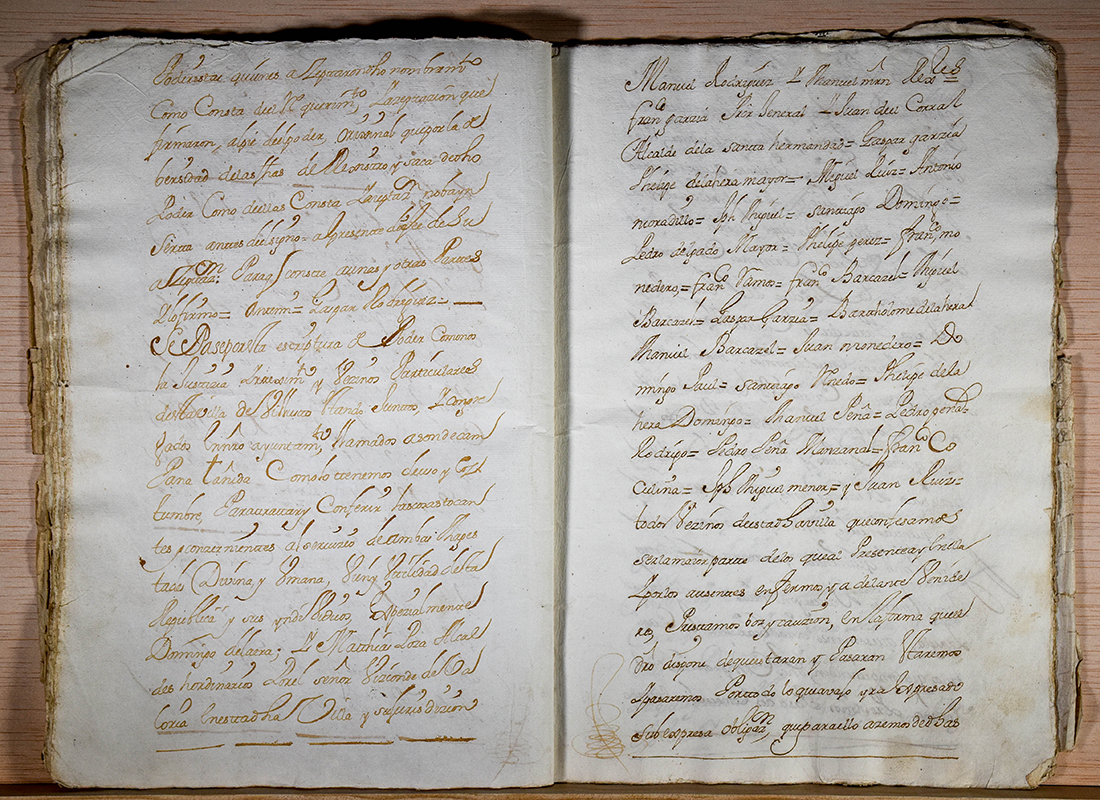 Poderes a quienes a dho nombramto
Como Consta del y azeptazion que
firmaron, al pie del poder, orijinal que por la di
bersidad de las fhas de Rexistro y saca de dho
Poder Como de ellas Consta no baya
antes del signo = al presente
Para q conste a unas y otras Partes
Lo firmo = Anttem = Gaspar
Se Pase por esta escriptura de Poder Como nos
la Justizia Rejimto y Vezinos Particulares
desta villa de estando Juntos, y Congre
gados En nro ayuntamto llamados a son de cam
Pana tañida Como lo tenemos de uso y Cos
tumbre, Para tratar y Conferir las cosas tocan
tes y convenientes al servizio de ambas Mages
tades Divina, y Umana, Vien y Utilidad desta
Republica y sus yndibiduos, Espezialmente
Domingo de la era; y Matthias Poza Alcal
des hordinarios Por el señor Vizconde de Va
loria En esta dha Villa y su Jurisdizion
Manuel Rodriguez y Manuel mrn Rexres
franco garzia Pror Jeneral y Juan del Corral
Alcalde de la santa hermandad = Gaspar garzia
Phelipe de la hera mayor = Miguel Ruiz = Antonio
moradillo = Jph Miguel = santiago Domingo =
Pedro delgado Mayor = Phelipe perez = Franco mo
nedero = franco Ramos = franco Barcazel = Miguel
Barcazel = Gaspar Garzia = Bartholome de la hera
Manuel Barcazel = Juan monedero = Do
mingo Paul = santiago = Phelipe de la
hera Domingo = Manuel Peña = Pedro
Rodrigo = Pedro Peña Manzanal = Franco Co
= Jph Miguel menor = y Juan Ruiz =
todos Vezinos de esta dha villa que confesamos
ser la maior parte de los que al Presente ay En ella
y por los ausentes enfermos y a delante Venide
ros, Prestamos boz y cauzion, en la forma que el
dro dispone de que estaran y Pasaran Estaremos
y pasaremos Por todo lo que abajo yra Expresado
Sub expresa obligazon que para ello azemos de dhas